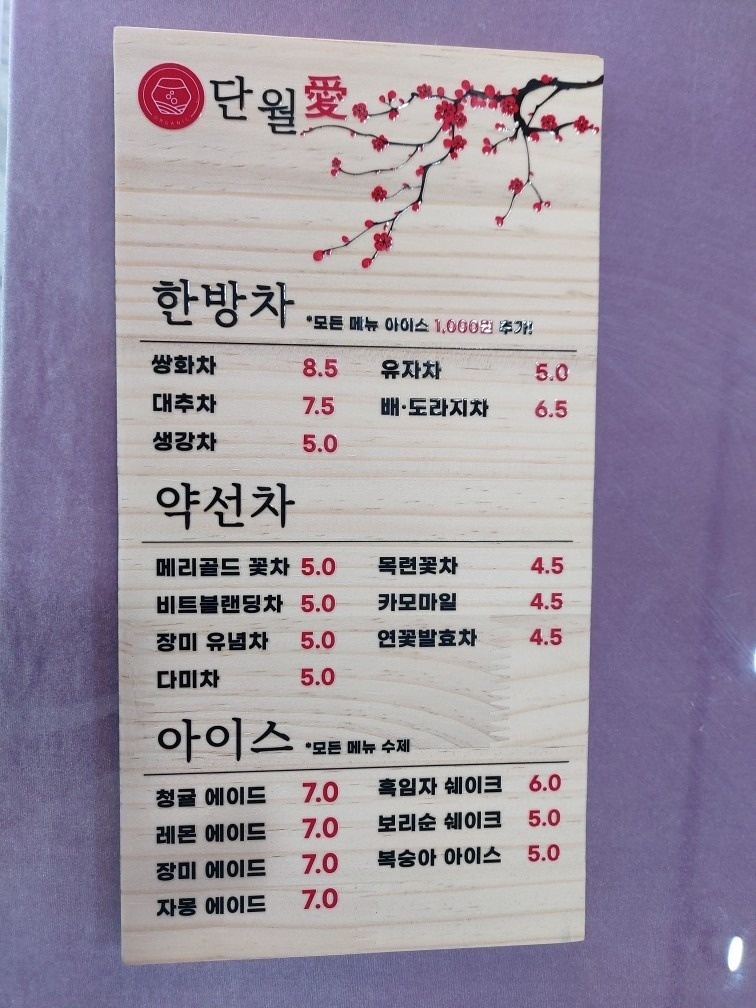 단월愛
ORGANIC
한방차 *모든 메뉴 아이스 1,000원 추가!
쌍화차 8.5 유자차 5.0
대추차 7.5 배·도라지차 6.5
생강차 5.0
약선차
메리골드 꽃차 5.0 목련꽃차 4.5
비트블랜딩차 5.0 카모마일 4.5
장미 유념차 5.0 연꽃발효차 4.5
다미차 5.0
아이스 *모든 메뉴 수제
청귤 에이드 7.0 흑임자 쉐이크 6.0
레몬 에이드 7.0 보리순 쉐이크 5.0
장미 에이드 7.0 복숭아 아이스 5.0
자몽 에이드 7.0